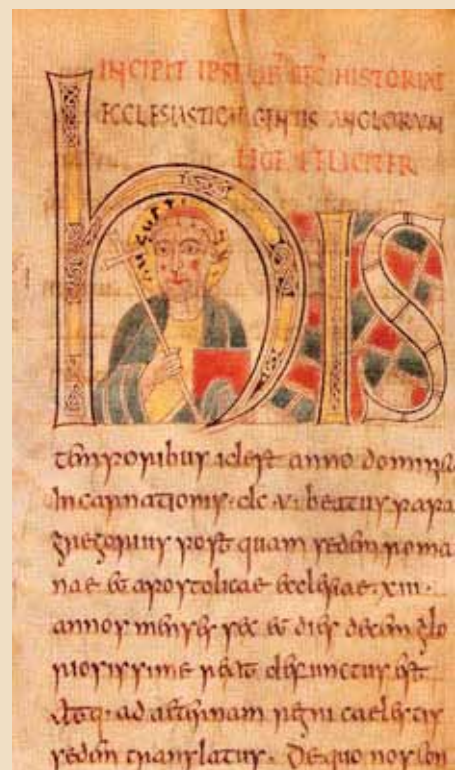 INCIPIT IPSI HISTORIAE
ECCLESIASTICAE GENTIS ANGLORUM
FELICITER
hIS
temporibus idest anno dominicae
incarnationis dc v beatus papa
gregorius post quam sedem roma
nae et apostolicae ecclesiae xiii
annos menses sex et dies decem glo
riosissime rexit defunctus est
atq· ad aeternam regni caelestis
sedem translatus. De quo nos con